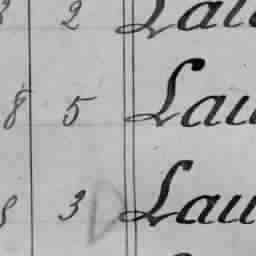 2 Lau
8 5 Lau
8 3 Lau